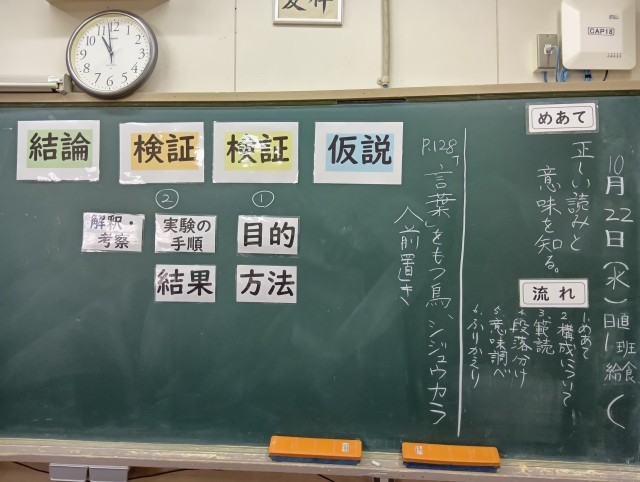 CAP18
10月22日(水)
日直
1班
給食
(
めあて
正しい読みと
意味を知る。
流れ
1.めあて
2.構成について
3.範読
4.段落分け
5.意味調べ
6.ふりかえり
P.128
「言葉」をもつ鳥、シジュウカラ
前置き
仮説
検証
検証
結論
①
②
目的
方法
実験の
手順
結果
解釈・
考察